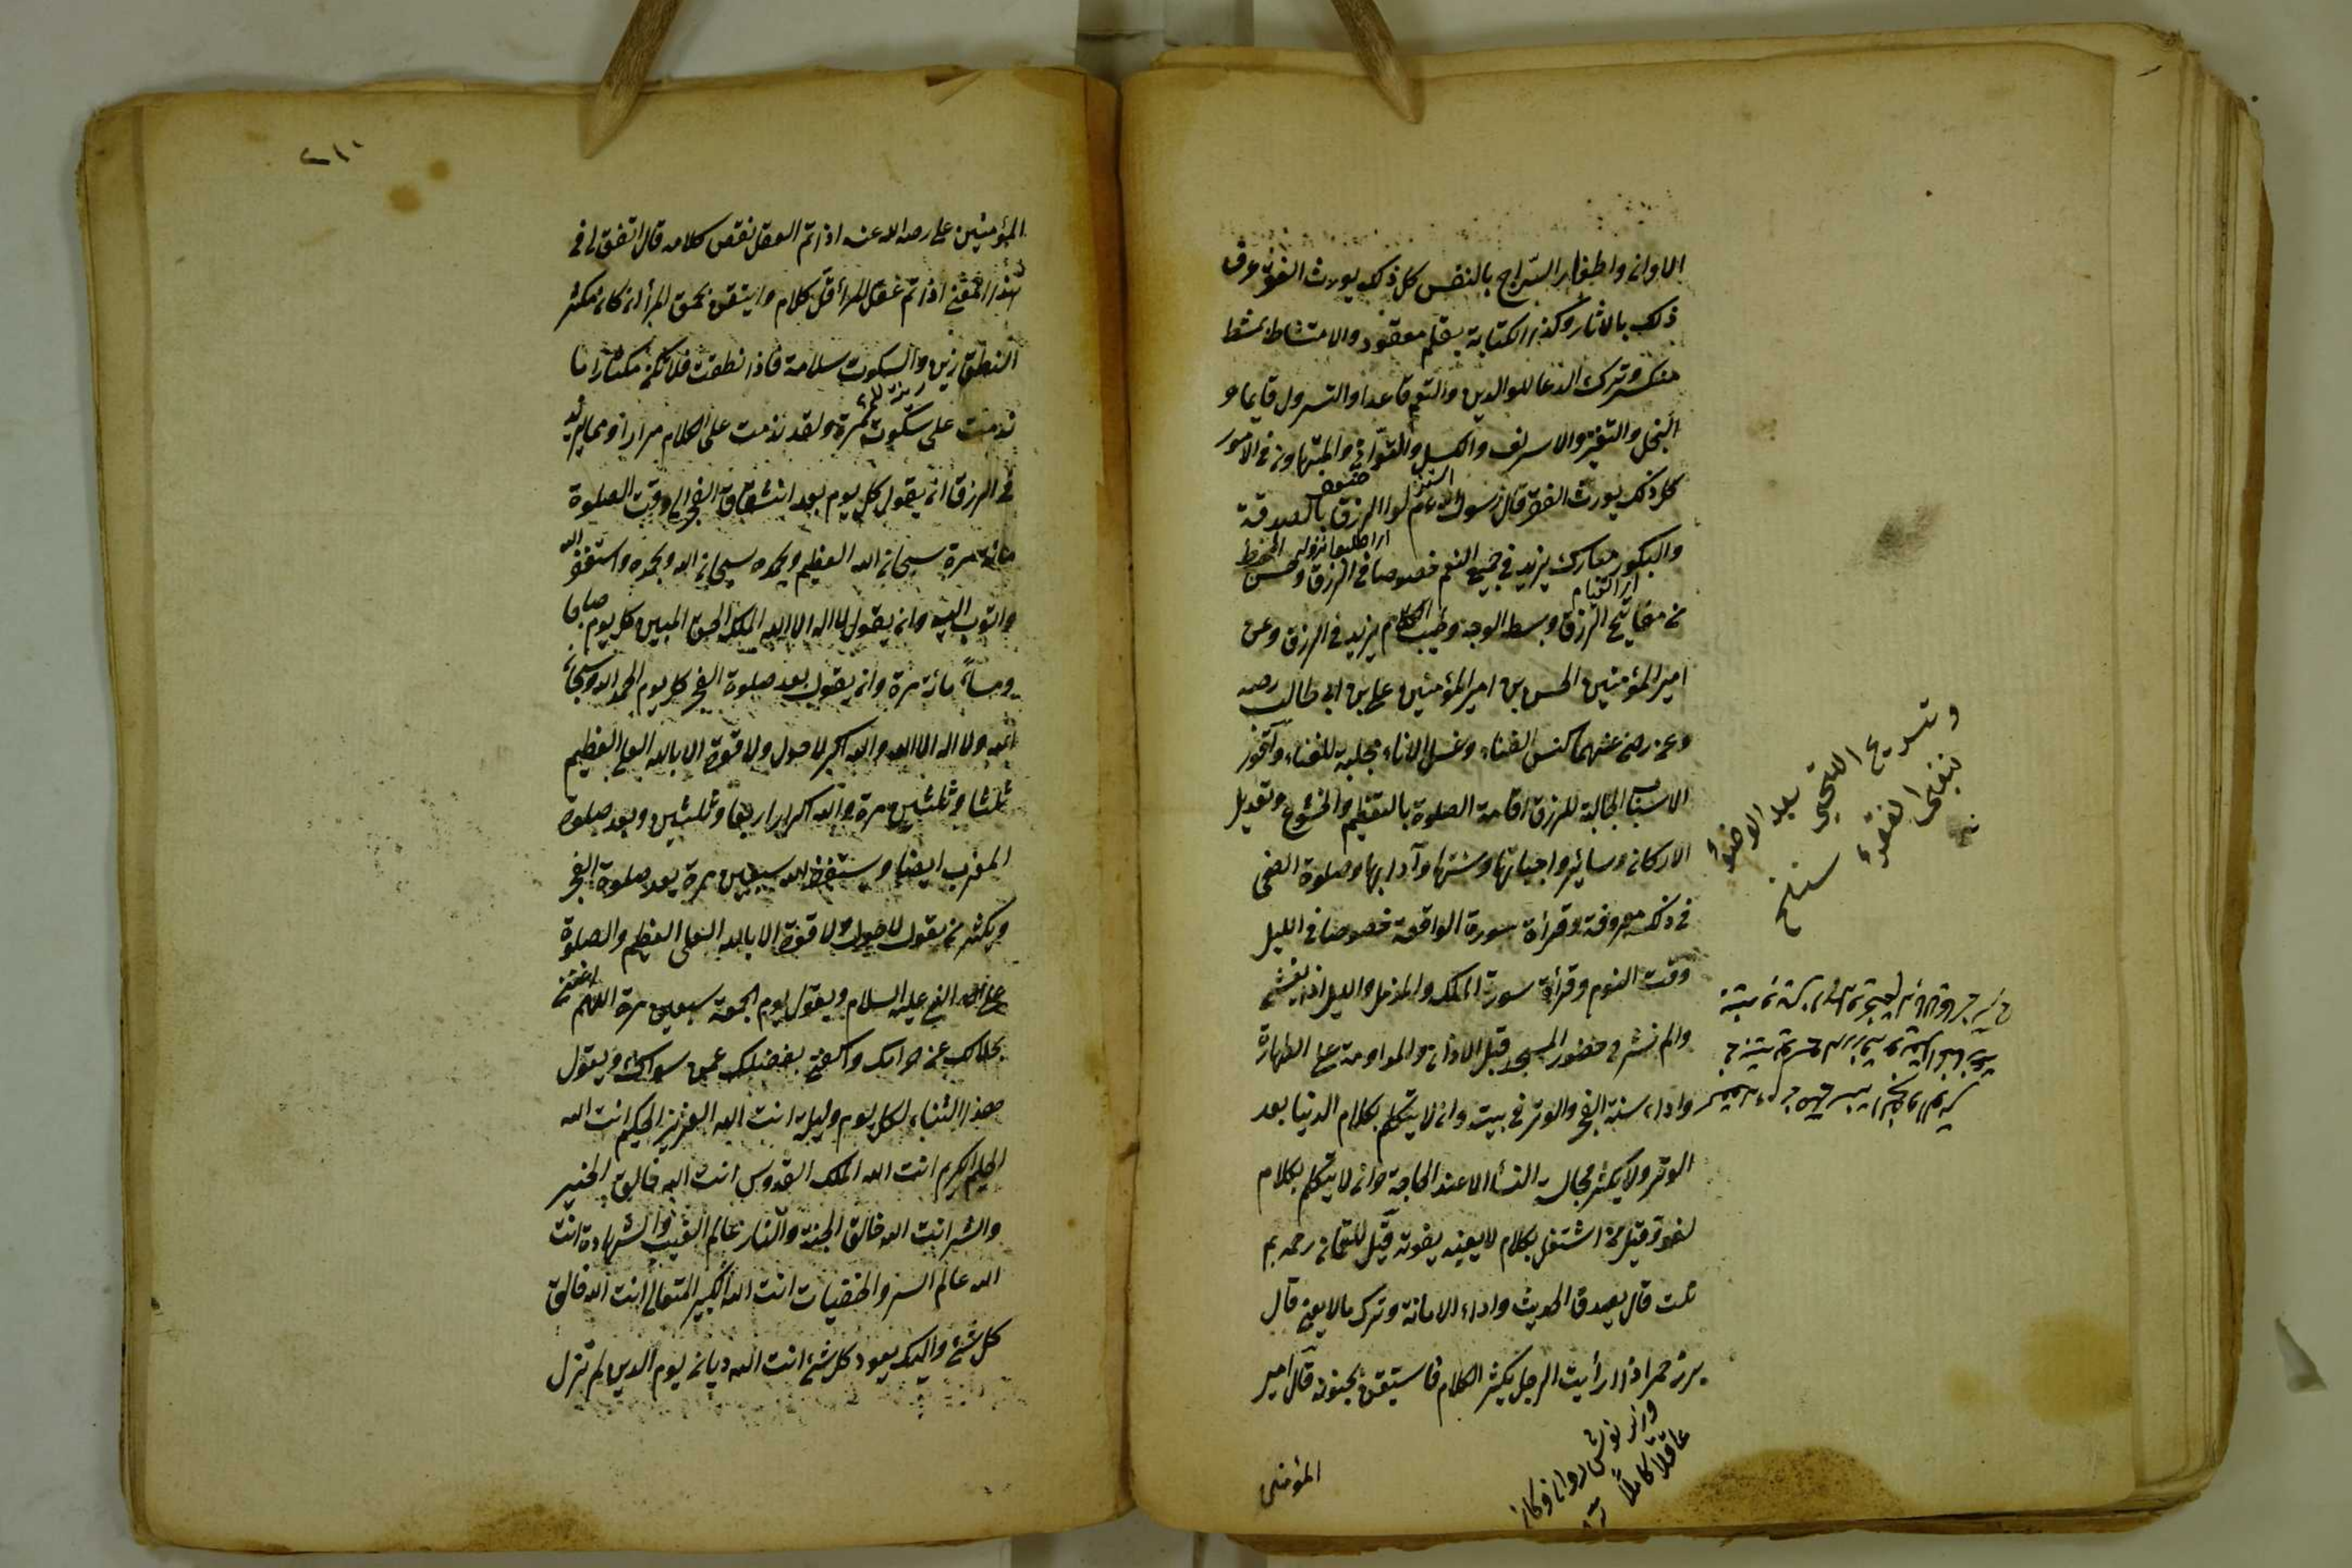 الاوانى واطفاء السراج بالنفس كل ذلك يورث الفقر عرف
ذلك بالاثار وكذا الكتابة بقلم معقود والامتشاط بمشط
منكسر وترك الدعا للوالدين والتعمم قاعدا والتسرول قايما و
البخل والتقتير والاسراف والكسل والتوانى والتهاون فى الامور
كل ذلك يورث الفقر قال رسول الله عم استنزلوا الرزق بالصدقة
اى اطلبوا نزوله
والبكور مبارك يزيد فى جميع النعم خصوصا فى الرزق وحسن الخط
من مفاتيح الرزق وبسط الوجه وطيب الكلام يزيد فى الرزق وعن
امير المؤمنين الحسن بن امير المؤمنين على بن ابى طالب رضه
وعن رضى عنهما كنس الفناء وغسل الاناء مجلبة للغناء واقوى
الاسباب الجالبة للرزق اقامة الصلوة بالتعظيم والخشوع وتعديل
الاركان وسائر واجباتها وسننها وآدابها وصلوة الضحى
فى ذلك معروفة وقرأة سورة الواقعة خصوصا فى الليل
وقت النوم وقرأة سورة الملك والمزمل والليل اذا يغشى
والم نشرح وحضور المسجد قبل الاذان والمداومة على الطهارة
واداء سنة الفجر والوتر فى بيته وان لا يتكلم بكلام الدنيا بعد
الوتر ولا يكثر مجالسة النسأ الا عند الحاجة وان لا يتكلم بكلام
لغو وقيل من اشتغل بكلام لا يعنيه يفوته قيل للقمان رحمه بم
نلت قال بصدق الحديث واداء الامانة وترك مالا يعنى قال
بزرجمهر اذا رأيت الرجل يكثر الكلام فاستيقن بجنونه قال امير
المؤمنين
وتسريح اللحى بعد الوضوء
ينفى الفقر
عاقلا كاملا
٢١٠
المؤمنين على رضه الله عنه اذا تم العقل نقص كلامه قال اتفق لى فى
هذا المعنى اذا تم عقل المرأ قل كلامه وايقن بحمق المرأ ان كان مكثر
النطق زين والسكوت سلامة فاذا نطقت فلا تكن مكثارا ما
ندمت على سكوت مرة ولقد ندمت على الكلام مرارا ومما يزيد
فى الرزق ان يقول كل يوم بعد انشقاق الفجر الى وقت الصلوة
مائة مرة سبحان الله العظيم وبحمده سبحان الله وبحمده واستغفر الله
واتوب اليه وان يقول لا اله الا الله الملك الحق المبين كل يوم صباحا
ومسأ مائة مرة وان يقول بعد صلوة الفجر كل يوم الحمد لله وسبحان
الله ولا اله الا الله والله اكبر لا حول ولا قوة الا بالله العلى العظيم
ثلثا وثلثين مرة والله اكبر اربعا وثلثين وبعد صلوة
المغرب ايضا ويستغفر الله سبعين مرة بعد صلوة الفجر
ويكثر من يقول لا حول ولا قوة الا بالله العلى العظيم والصلوة
على النبى عليه السلام ويقول يوم الجمعة سبعين مرة اللهم اغننى
بحلالك عن حرامك واكفنى بفضلك عمن سواك ويقول
هذا الثناء لكل يوم وليلة انت الله العزيز الحكيم انت الله
الحليم الكريم انت الله الملك القدوس انت الله خالق الخير
والشر انت الله خالق الجنة والنار عالم الغيب والشهادة انت
الله عالم السر والخفيات انت الله الكبير المتعال انت الله خالق
كل شئ واليك يعود كل شئ انت الله ديان يوم الدين لم تزل